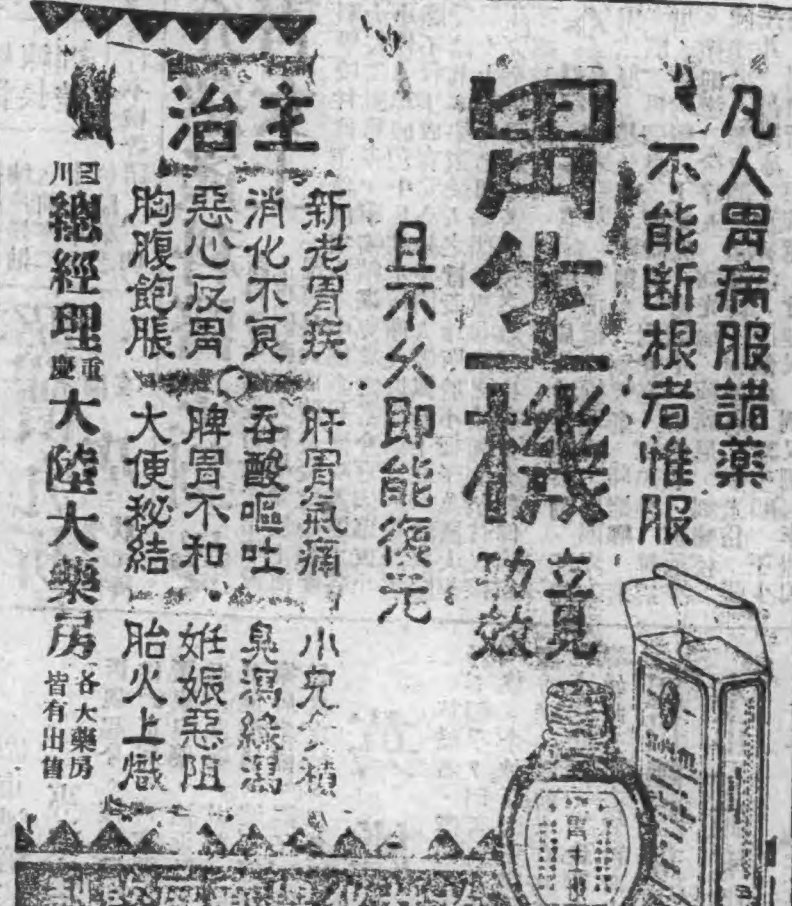 凡人胃病服諸藥
不能断根者惟服
胃生機
立見
功效
且不久即能復元
主治
新老胃疾
肝胃氣痛
小兒食積
消化不良
吞酸嘔吐
臭瀉綠瀉
惡心反胃
脾胃不和
妊娠惡阻
胸腹飽脹
大便秘結
胎火上熾
四川
總經理
重慶
大陸大藥房
各大藥房
皆有出售
胃生機